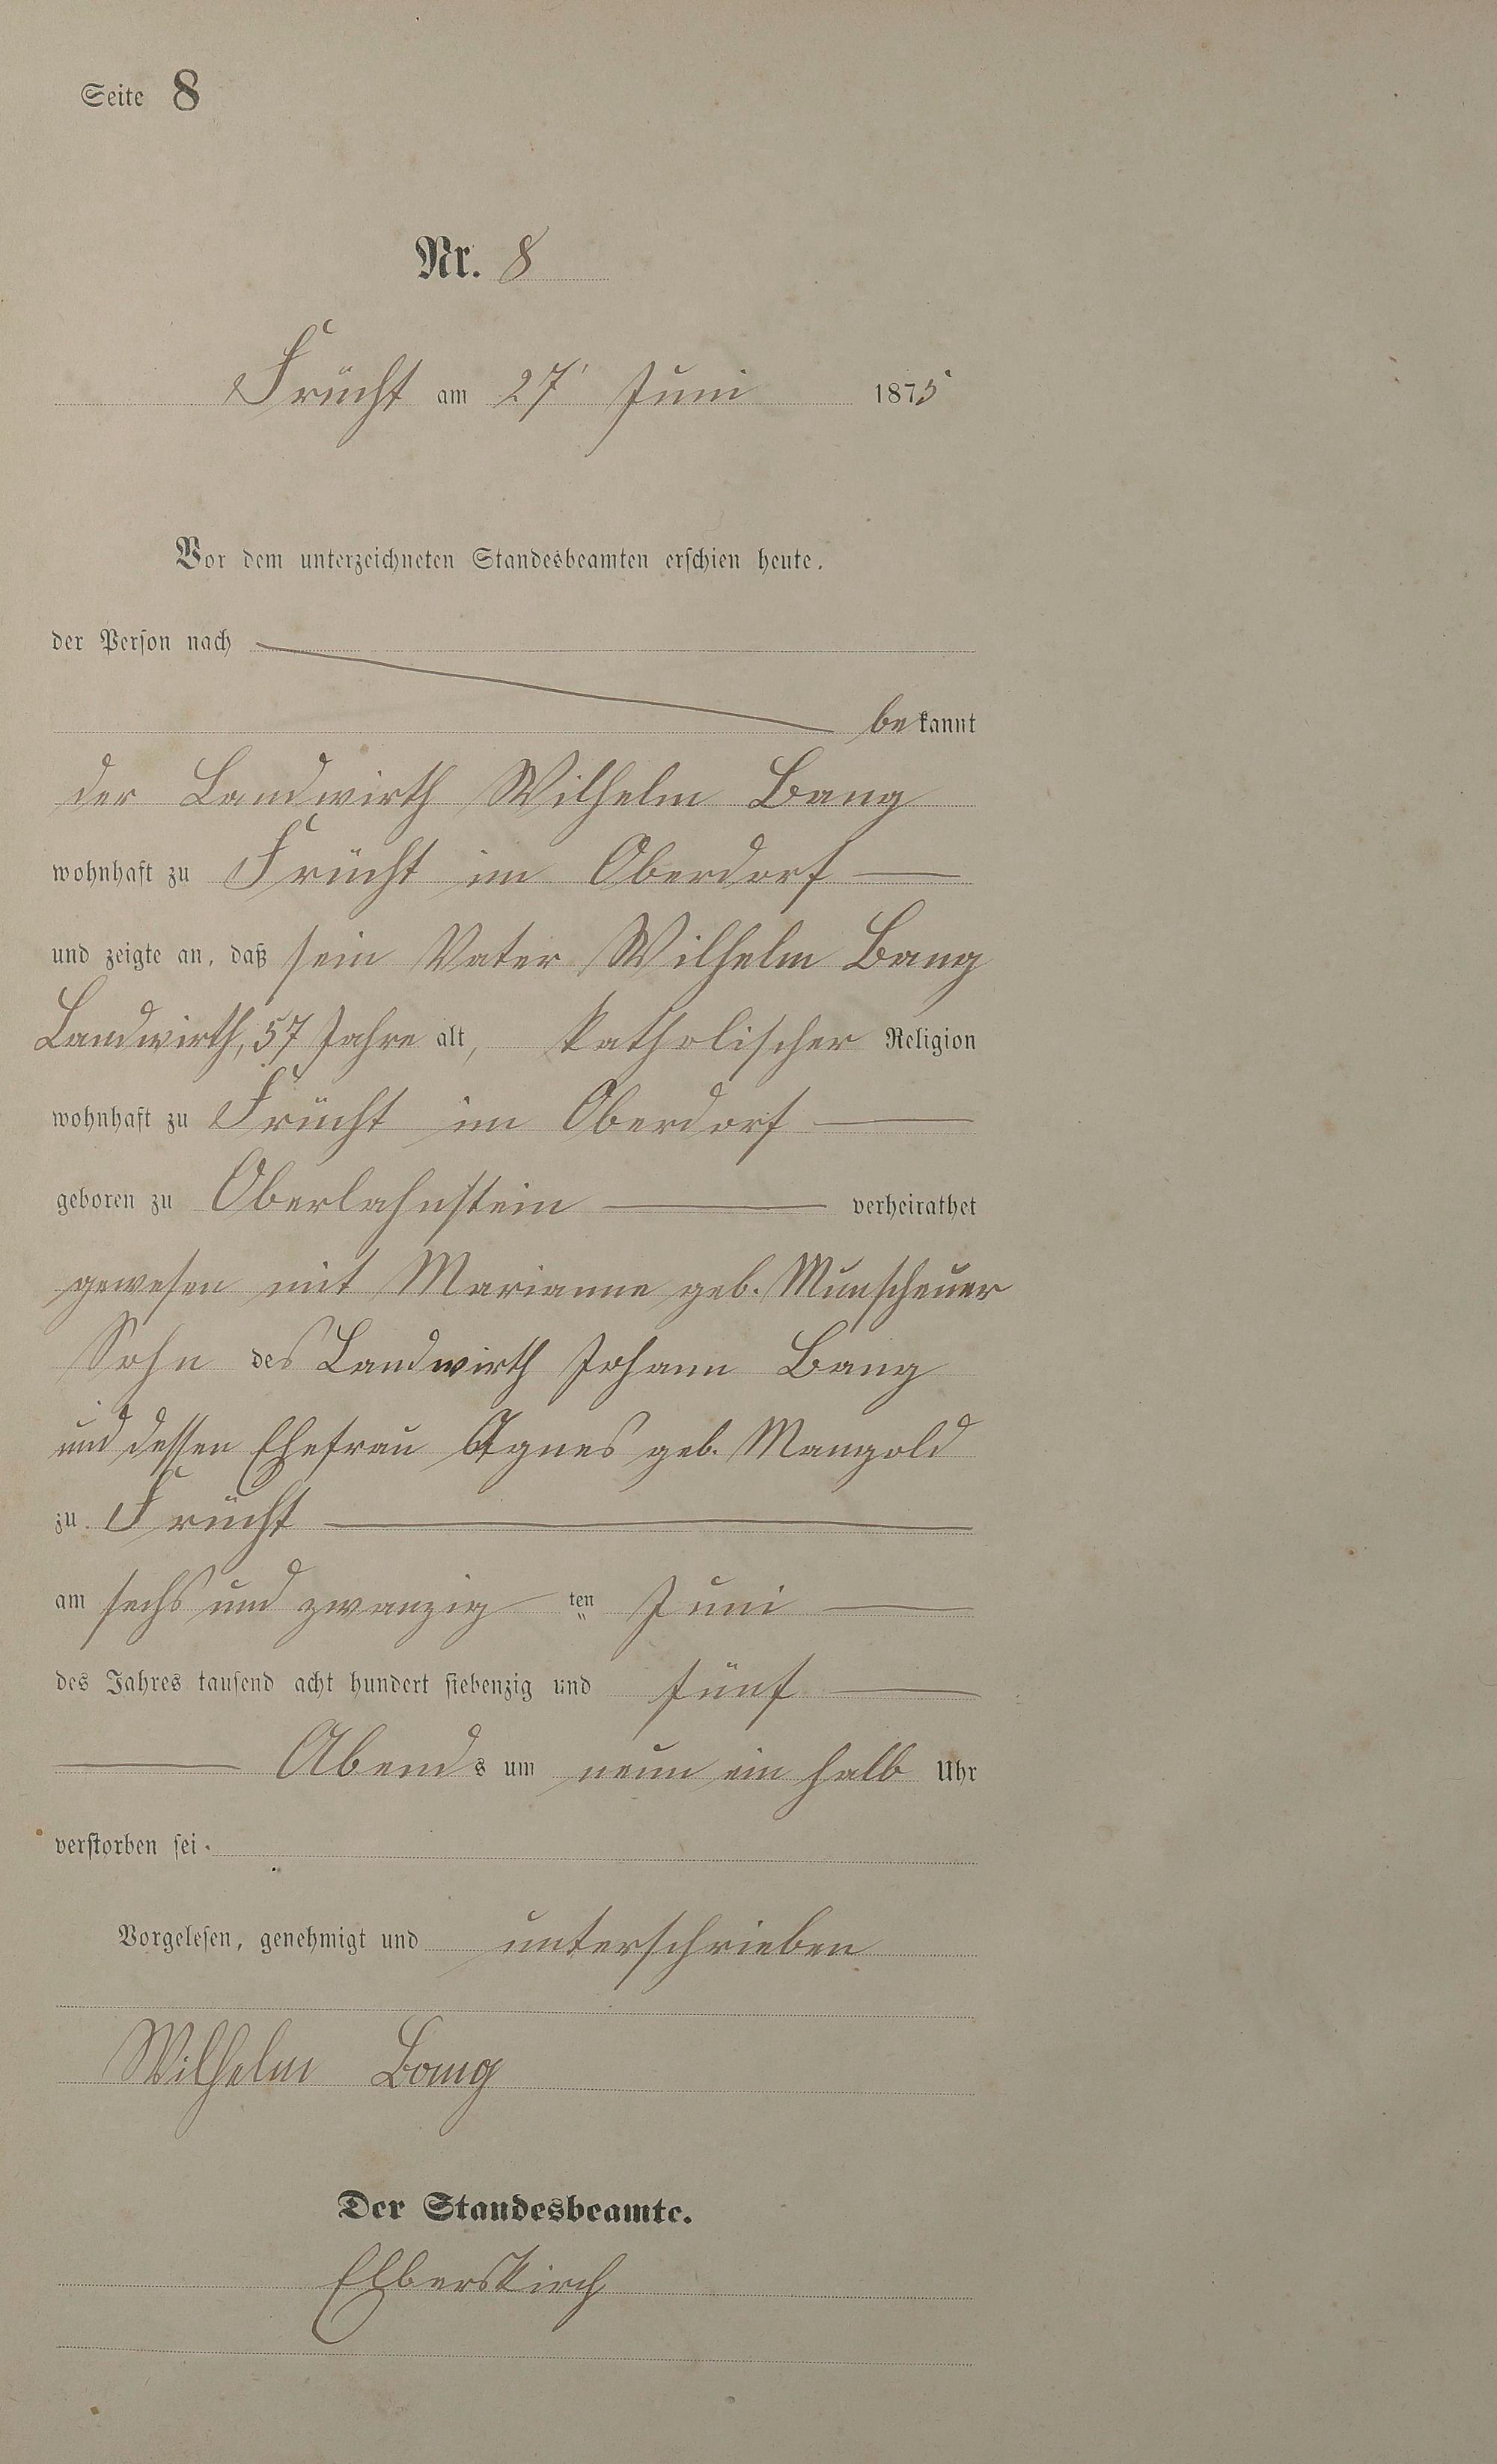 Seite 8
Nr. 8
Frücht am 27' Juni 1875
Vor dem unterzeichneten Standesbeamten erschien heute,
der Person nach
bekannt
der Landwirth Wilhelm Bang
wohnhaft zu Frücht im Oberdorf
und zeigte an, daß sein Vater Wilhelm Bang
Landwirth, 57 Jahre alt, katholischer Religion
wohnhaft zu Frücht im Oberdorf
geboren zu Oberlahnstein verheirathet
gewesen mit Marianne geb. Munscheuer
Sohn des Landwirth Johann Bang
und dessen Ehefrau Agnes geb. Mangold
zu Frücht
am sechs und zwanzigten Juni
des Jahres tausend acht hundert siebenzig und fünf
Abends um neun ein halb Uhr
verstorben sei.
Vorgelesen, genehmigt und unterschrieben
Wilhelm Bang
Der Standesbeamte.
Elberskirch